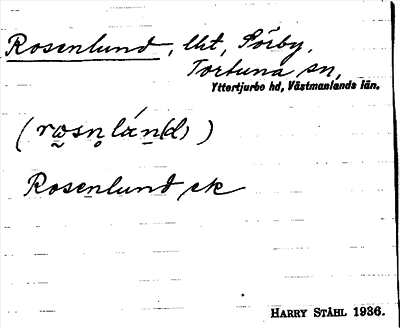 Rosenlund, lht, Sörby,
Tortuna sn,
Yttertjurbo hd, Västmanlands län.
(rωsn̥ lán(d))
Rosenlund ek
HARRY STÅHL 1936.